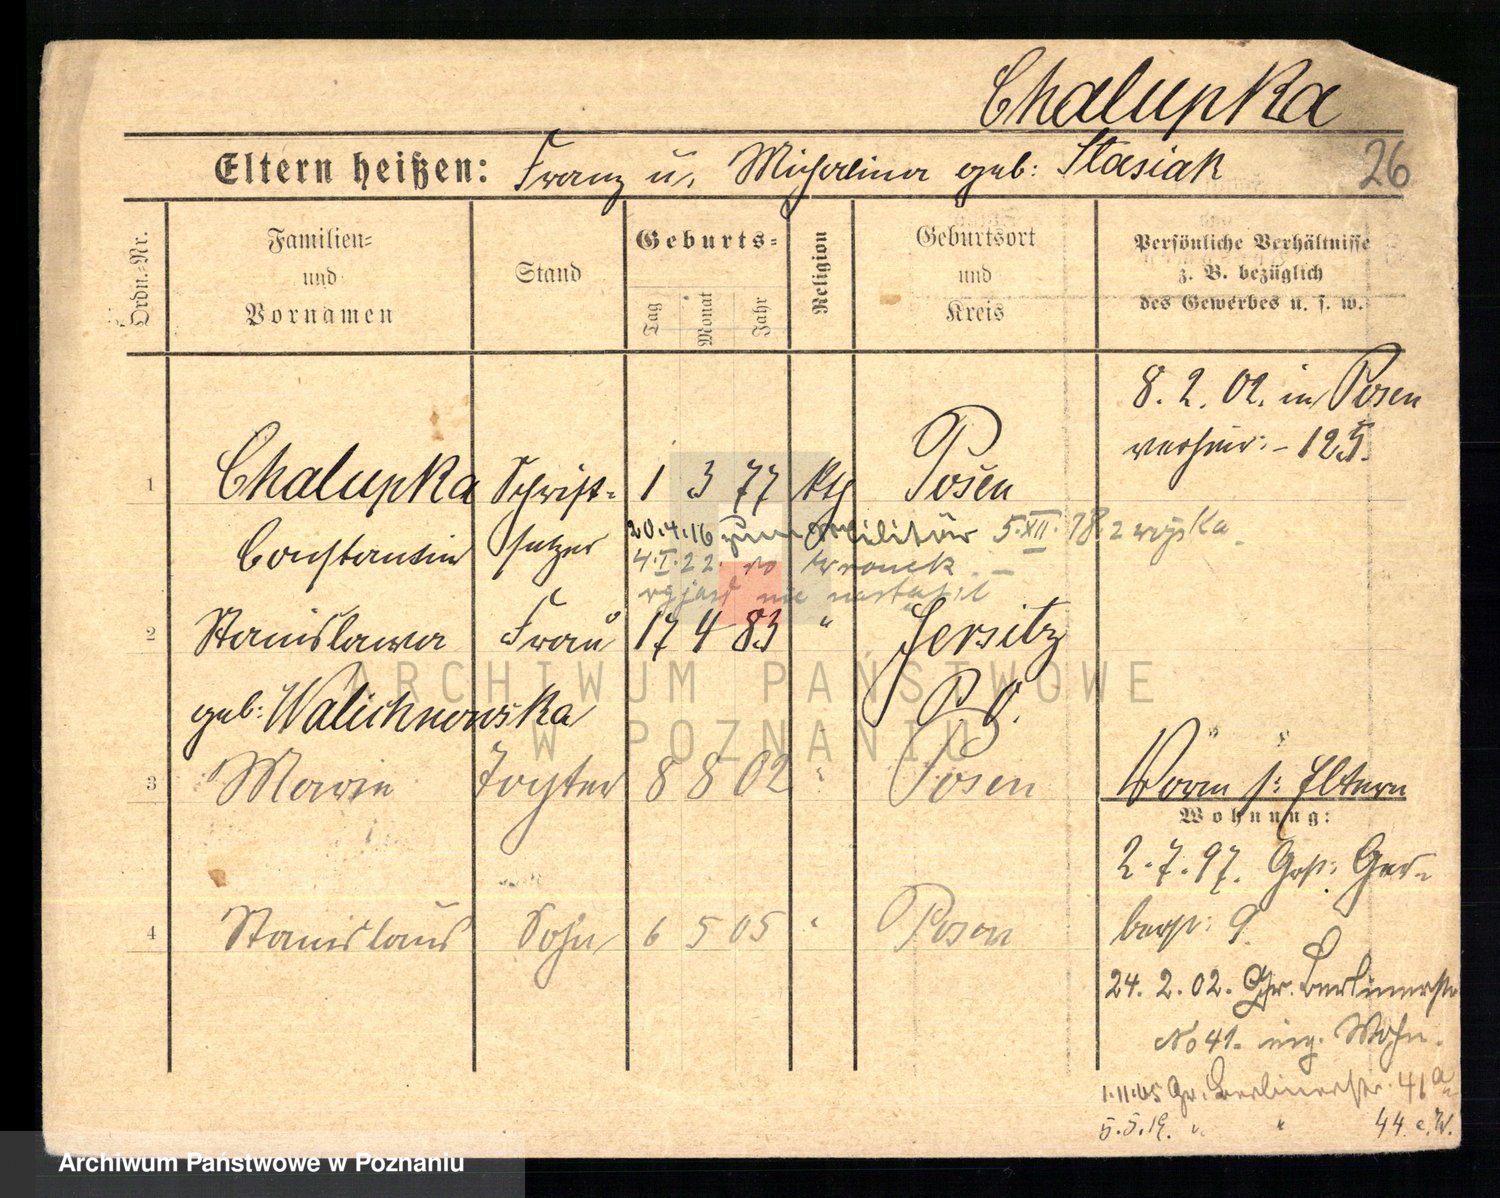 Chalupka
Eltern heißen: Franz u. Michalina geb: Stasiak
26
Ordn.-Nr.
Familien-
und
Vornamen
Stand
Geburts-
Tag
Monat
Jahr
Religion
Geburtsort
und
Kreis
Persönliche Verhältnisse
z. B. bezüglich
des Gewerbes u. s. w.
8. 2. 02. in Posen
verheir: -
1 Chalupka Schrift- 1 3 77 kth Posen
Constantin setzer 20.4.16 zum Militär 5.XII.18. z wojska
4.I.22. Wronek
wyjazd nie nastąpił
2 Stanislawa Frau 17 4 83 " Jersitz
geb: Walichnowska P. O.
3 Marie Tochter 8 8 02 " Posen
Vorm s: Eltern
Wohnung:
2.7.97. Ger-
berstr: 9.
4 Stanislaus Sohn 6 5 05 " Posen
24. 2. 02. Gr. Berlinerstr
No 41. eig. Wohn.
1.11.05 Gr. Berlinerstr. 41a
5.5.19. " " 44 e.W.
ARCHIWUM PAŃSTWOWE
W POZNANIU
Archiwum Państwowe w Poznaniu